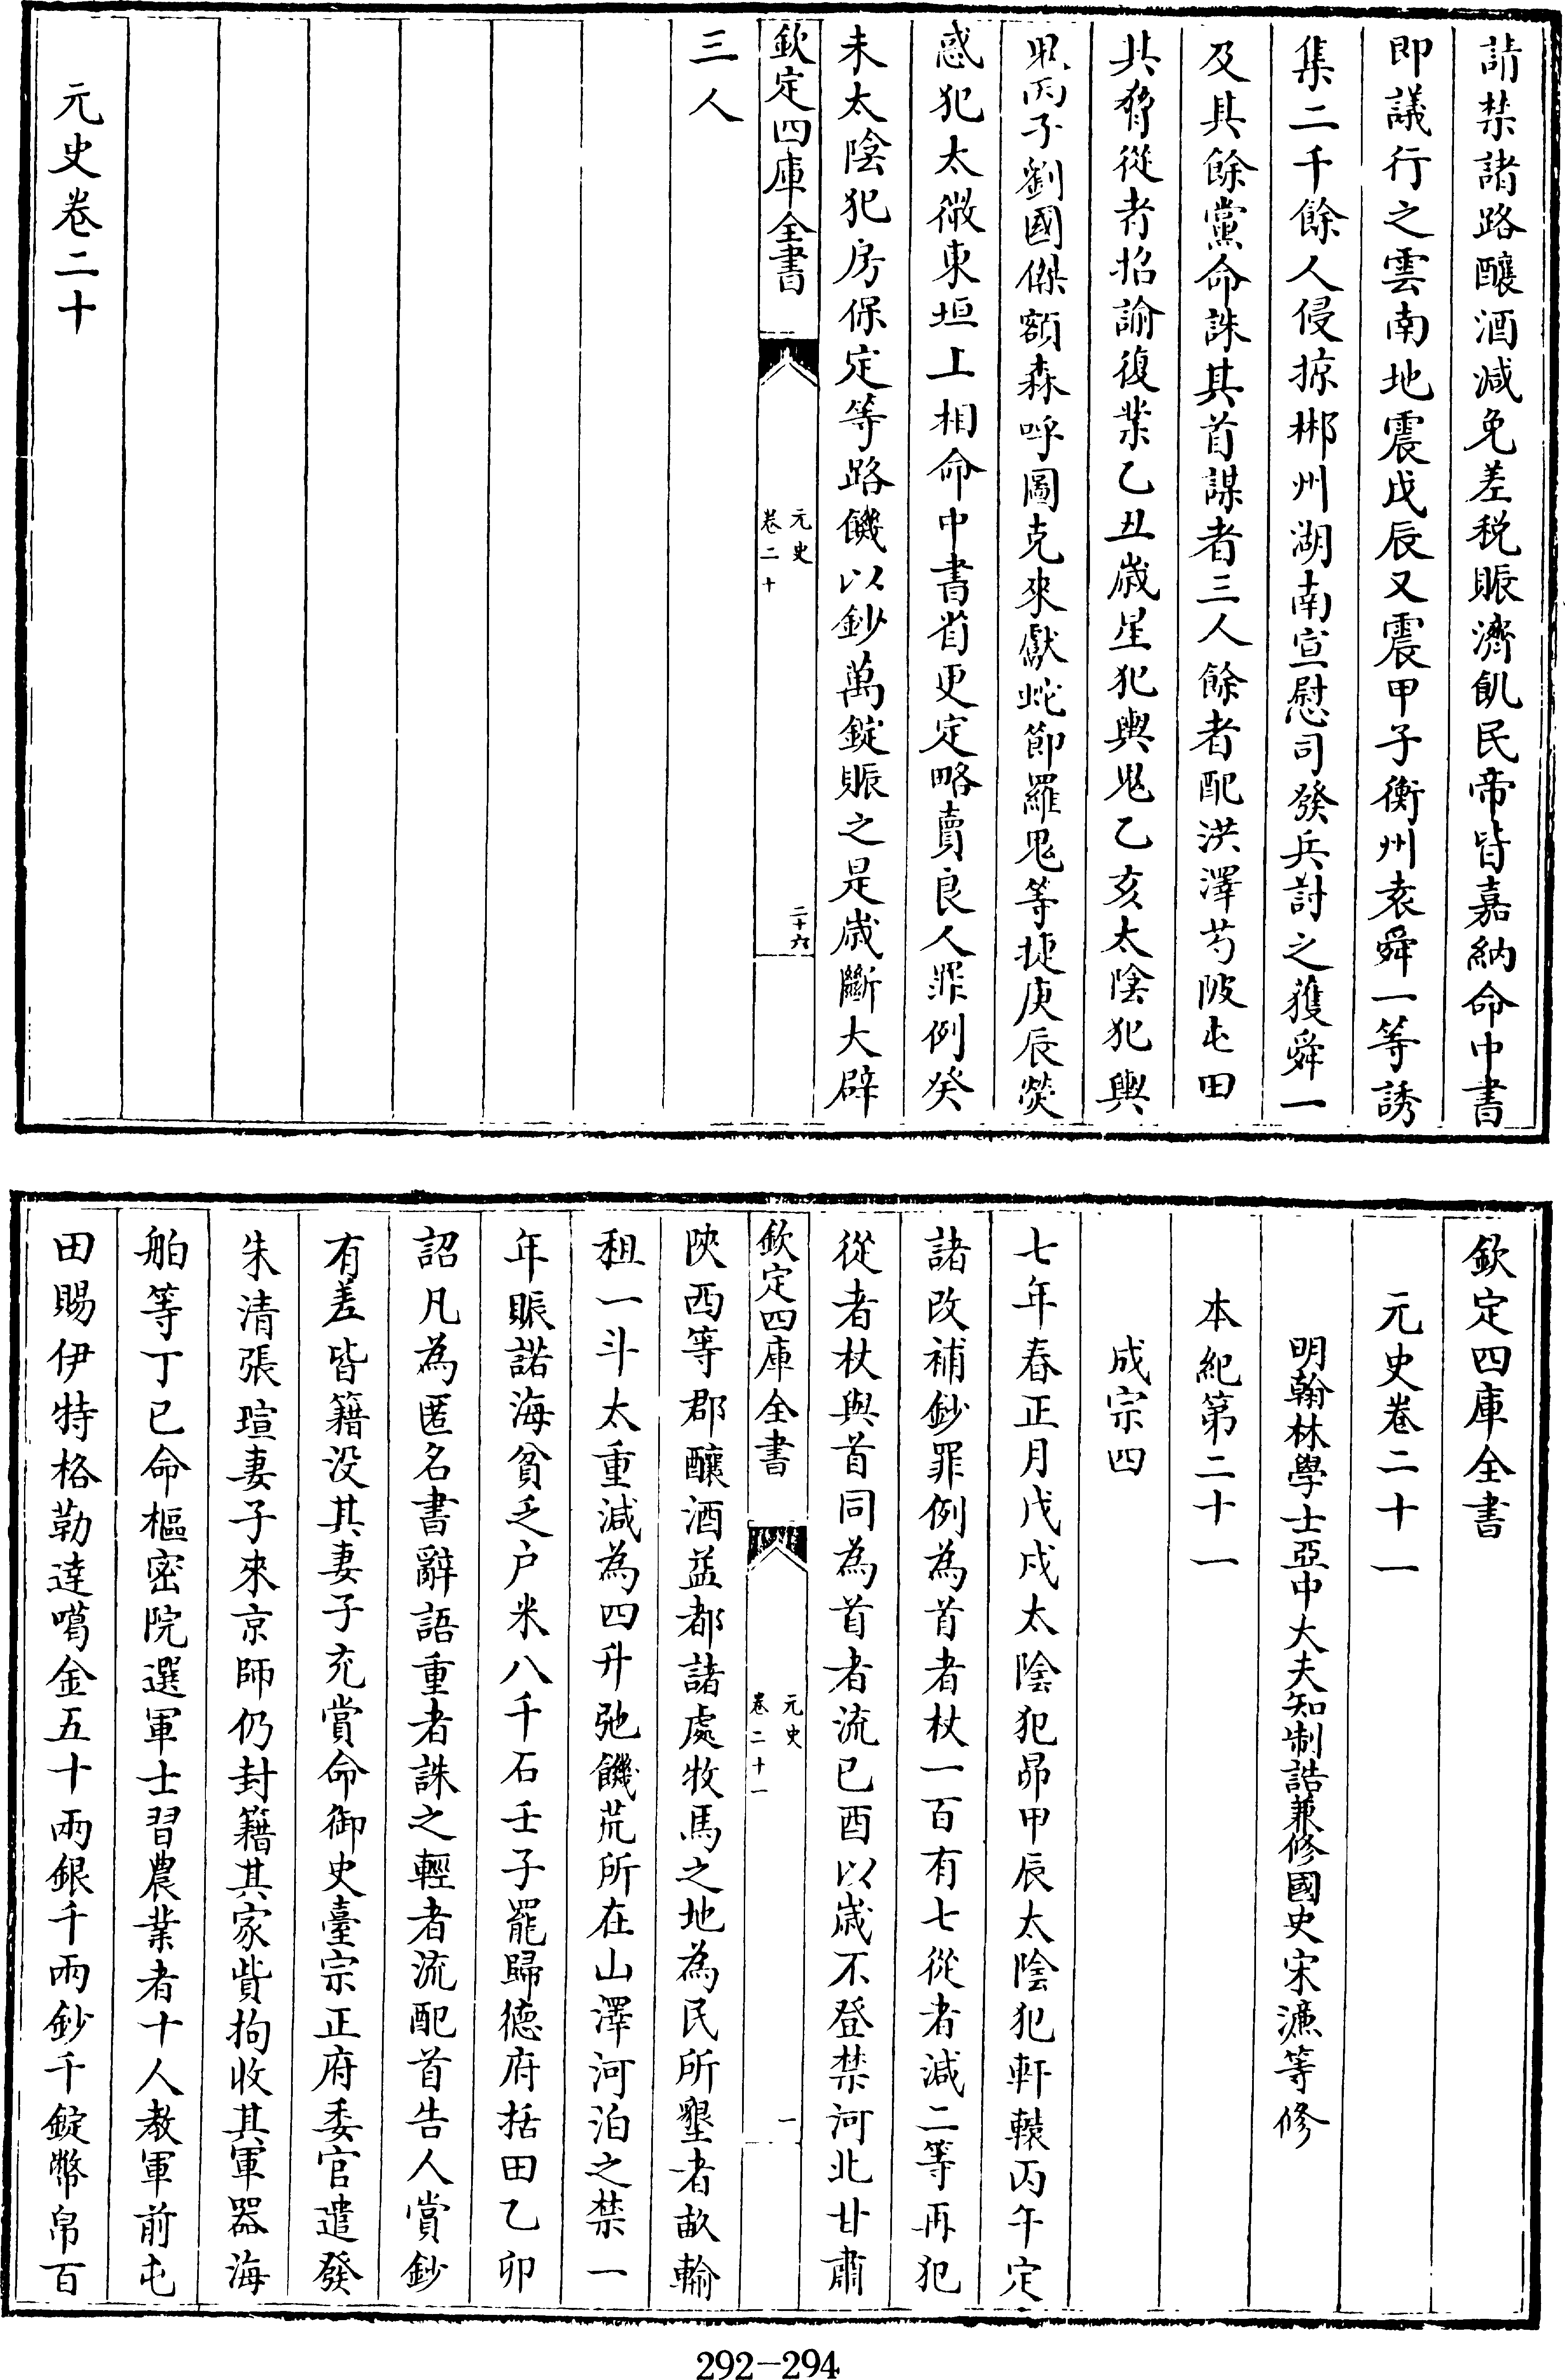 請禁諸路釀酒减免差税賑濟飢民帝皆嘉納命中書
即議行之雲南地震戊辰又震甲子衡州袁舜一等誘
集二千餘人侵掠郴州湖南宣慰司發兵討之獲舜一
及其餘黨命誅其首謀者三人餘者配洪澤芍陂屯田
其脅從者招諭復業乙丑歲星犯輿鬼乙亥太陰犯輿
鬼丙子劉國傑額森呼圖克來獻蛇節羅鬼等捷庚辰熒
惑犯太微東垣上相命中書省更定略賣良人罪例癸
未太陰犯房保定等路饑以鈔萬錠賑之是歲斷大辟
欽定四庫全書
元史
卷二十
二十六
三人
元史卷二十
欽定四庫全書
元史卷二十一
明翰林學士亞中大夫知制誥兼修國史宋濂等修
本紀第二十一
成宗四
七年春正月戊戌太陰犯昴甲辰太陰犯軒轅丙午定
諸改補鈔罪例為首者杖一百有七從者減二等再犯
從者杖與首同為首者流已酉以歲不登禁河北甘肅
欽定四庫全書
元史
卷二十一
一
陝西等郡釀酒益都諸處牧馬之地為民所墾者畝輸
租一斗太重減為四升弛饑荒所在山澤河泊之禁一
年賑諾海貧乏户米八千石壬子罷歸德府括田乙卯
詔凡為匿名書辭語重者誅之輕者流配首告人賞鈔
有差皆籍没其妻子充賞命御史臺宗正府委官遣發
朱清張瑄妻子來京師仍封籍其家貲拘收其軍器海
舶等丁已命樞密院選軍士習農業者十人教軍前屯
田賜伊特格勒達噶金五十兩銀千兩鈔千錠幣帛百
292-294